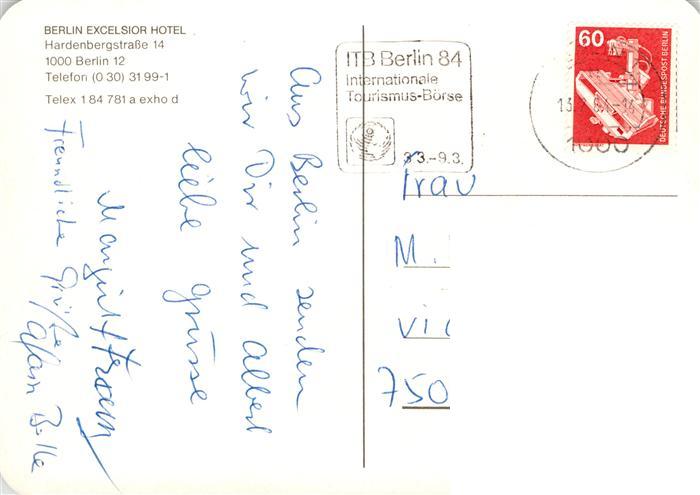 BERLIN EXCELSIOR HOTEL
Hardenbergstraße 14
1000 Berlin 12
Telefon (0 30) 31 99-1
Telex 1 84 781 a exho d
Aus Berlin senden
wir Dir und Albert
liebe Grüsse
Margitt
Freundliche Grüße
ITB Berlin 84
Internationale
Tourismus-Börse
3.3.-9.3.
60
DEUTSCHE BUNDESPOST BERLIN
1000
Frau
M.
750